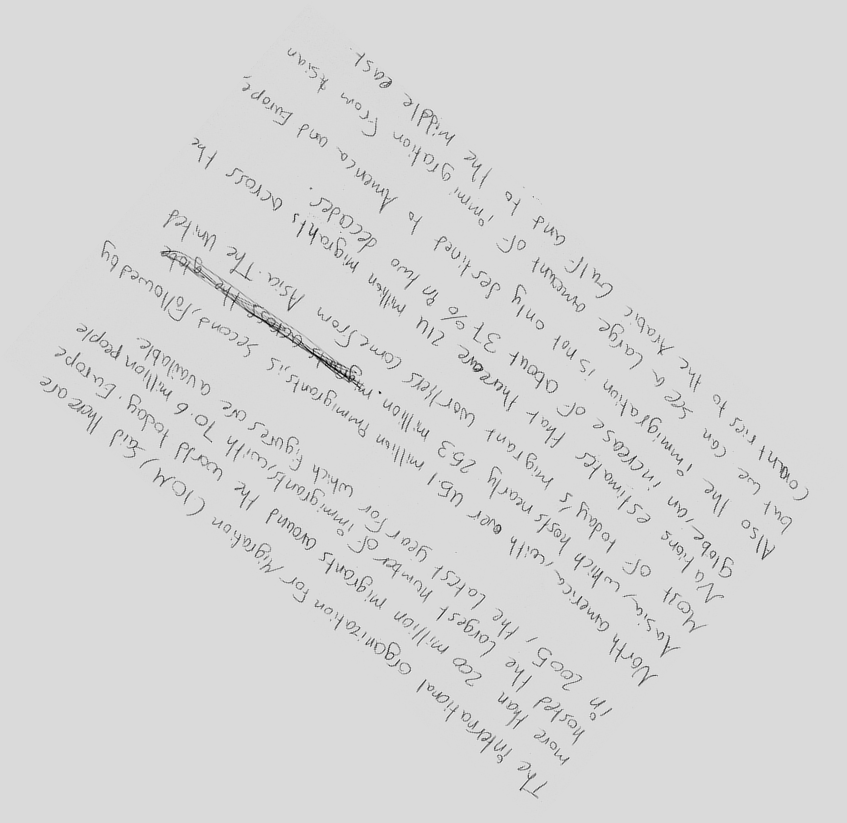 The international organization For Migration (IOM) said there are
more than 200 million migrants around the world today. Europe
hosted the Largest number of immigrants, with 70.6 million people
in 2005, the Latest year For which Figures are available.
North america, with over 45,1 million immigrants, is second, Followed by
Aasia, which hosts nearly 253 million.
Most of today's migrant workers come From Asia. The United
Nations estimates that there are 214 million migrants across the
globe, an increase of about 37% in two decades.
Also the immigration is not only destined to America and Europe,
but we can see a Large amount of immigration From Asian
Countries to the Arabic Gulf and to the middle east.